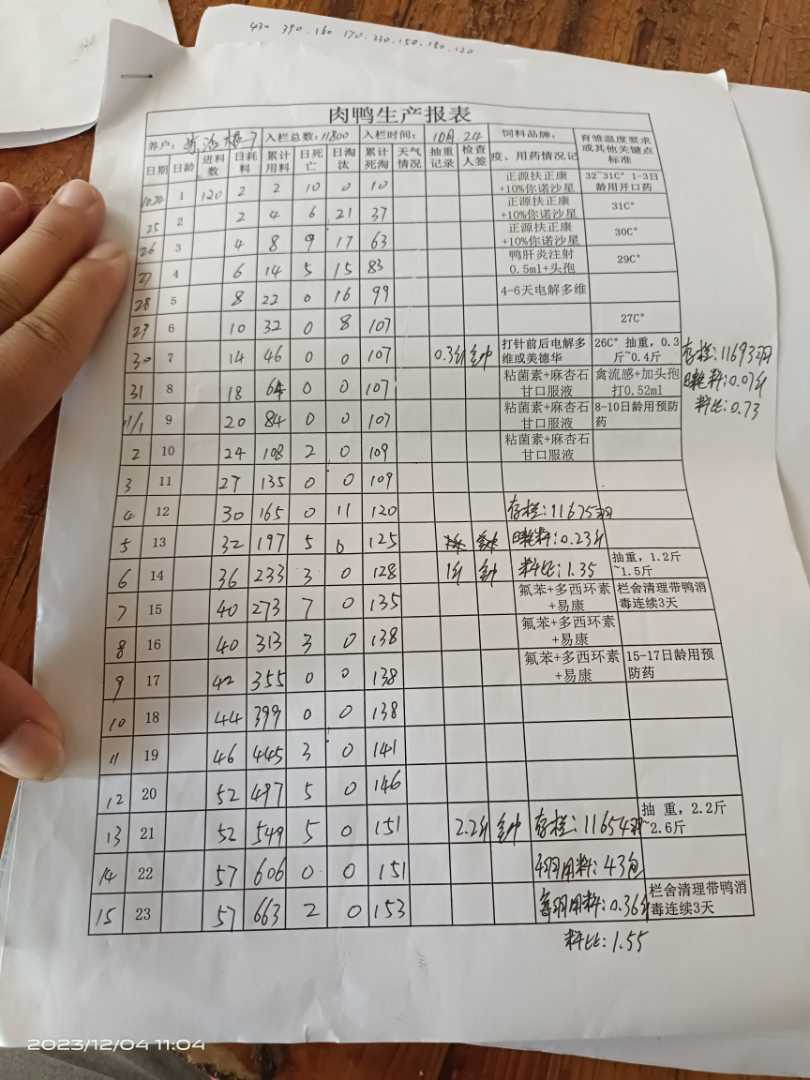 430 390.160 170.330.150.150.120
肉鸭生产报表
养户: 入栏总数:11800 入栏时间: 10月.24 饲料品牌: 育雏温度要求或其他关键点标准
日期 日龄 进料数 日耗料 累计用料 日死亡 日淘汰 累计死淘 天气情况 抽重记录 检查人签 疫、用药情况记
10.24 1 120 2 2 10 0 10 正源扶正康+10%你诺沙星 32~31C° 1-3日龄用开口药
25 2 2 4 6 21 37 正源扶正康+10%你诺沙星 31C°
26 3 4 8 9 17 63 正源扶正康+10%你诺沙星 30C°
27 4 6 14 5 15 83 鸭肝炎注射0.5ml+头孢 29C°
28 5 8 22 0 16 99 4-6天电解多维
29 6 10 32 0 8 107 27C°
30 7 14 46 0 0 107 0.3斤 打针前后电解多维或美德华 26C° 抽重,0.3斤~0.4斤 存栏:11693羽
31 8 18 64 0 0 107 粘菌素+麻杏石甘口服液 禽流感+加头孢打0.52ml 日耗料:0.07斤
11/1 9 20 84 0 0 107 粘菌素+麻杏石甘口服液 8-10日龄用预防药 料比:0.73
2 10 24 108 2 0 109 粘菌素+麻杏石甘口服液
3 11 27 135 0 0 109
4 12 30 165 0 11 120 存栏:11675羽
5 13 32 197 5 0 125 日耗料:0.23斤
6 14 36 233 3 0 128 1斤 料比:1.35 抽重,1.2斤~1.5斤
7 15 40 273 7 0 135 氟苯+多西环素+易康 栏舍清理带鸭消毒连续3天
8 16 40 313 3 0 138 氟苯+多西环素+易康
9 17 42 355 0 0 138 氟苯+多西环素+易康 15-17日龄用预防药
10 18 44 399 0 0 138
11 19 46 445 3 0 141
12 20 52 497 5 0 146
13 21 52 549 5 0 151 2.2斤 存栏:11654羽 抽重,2.2斤~2.6斤
14 22 57 606 0 0 151 用料:43包
15 23 57 663 2 0 153 每羽用料:0.36斤 栏舍清理带鸭消毒连续3天
料比:1.55
2023/12/04 11:04